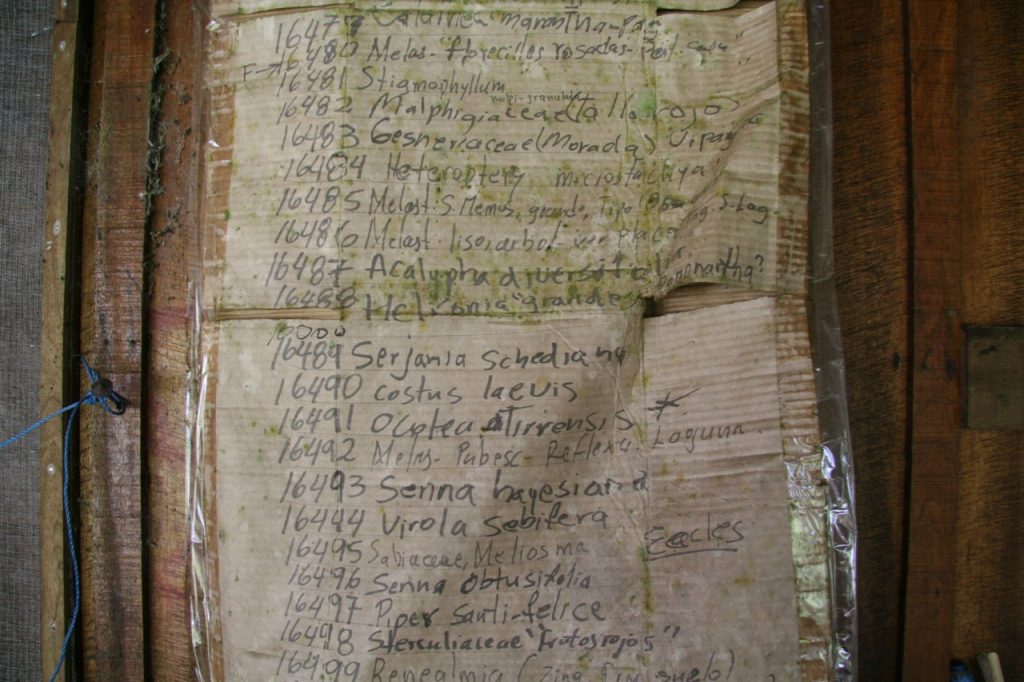 16477 Calathea "marantha-
16480 Melas- "florecillas rosadas-
F→ 16481 Stigmophyllum
16482 Malphigiaceae rojo
16483 Gesneriaceae (Morada)
16484 Heteroptery microstachya
16485 Melast. S. Memos, grande, Tipo Lag. S. Lag.
16486 Melast.
16487 Acalypha diversifol
16488 Helconia "grande"
10000
16489 Serjania schediana
16490 Costus laevis
16491 Ocotea Tirrensis
16492 Melas- Pubesc- Reflexa. Laguna.
16493 Senna hayesiana
16444 Virola Sebifera
16495 Sabiaceae, Meliosma Eccles
16496 Senna obtusifolia
16497 Piper santi-felice
16498 Sterculiaceae "Frotosrojos"
16499 Renealmia suelo)